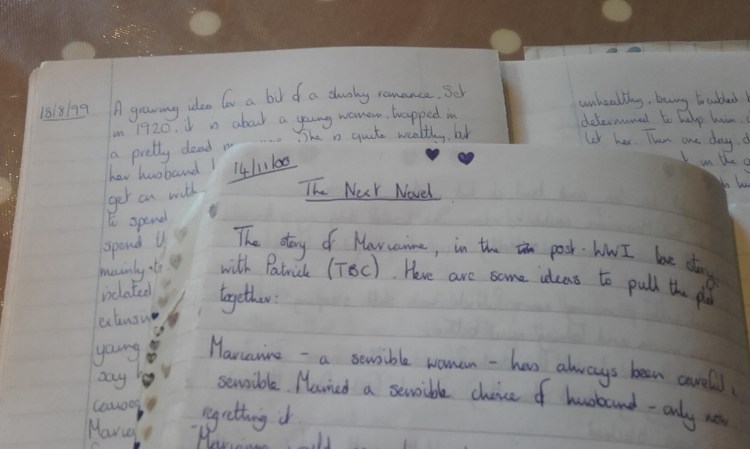 18/8/99
A growing idea for a bit of a slushy romance. Set
in 1920, it is about a young woman, trapped in
a pretty dead She is quite wealthy, but
her husband
get on with
to spend
spend
mainly
isolated
young
say
Maria
unhealthy, being troubled
determined to help him,
let her. Then one day,
in the
14/11/00
The Next Novel
The story of Marianne, in the post-WWI love story
with Patrick (TBC). Here are some ideas to pull the plot
together:
Marianne - a sensible woman - has always been careful &
sensible. Married a sensible choice of husband - only now
regretting it
Marianne